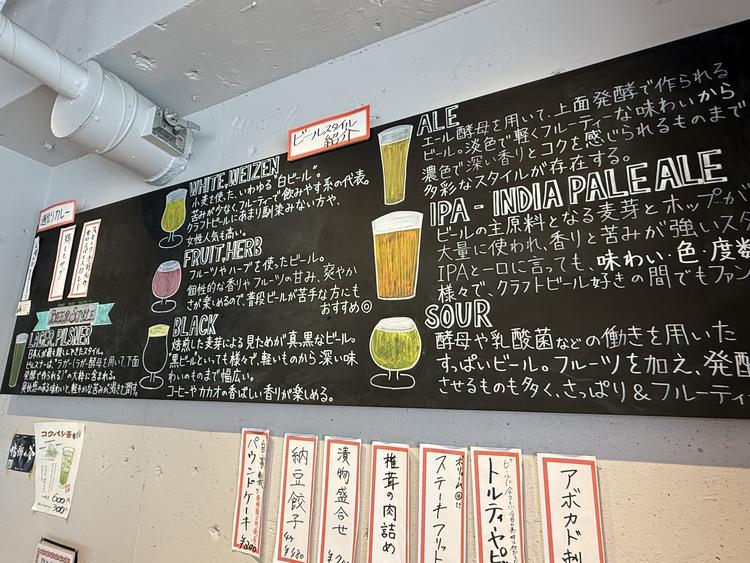 ビールスタイル
紹介
BEER STYLE
LAGER, PILSNER
日本人が最も親しんできたスタイル。
ピルスナーは、"ラガー(ラガー酵母を用いて、下面
発酵で作られる)"の大枠に含まれる。
爽快感のある味わいと、軽やかな苦みが喉を潤す。
WHITE, WEIZEN
小麦を使た、いわゆる"白ビール"。
苦みが少なく、フルーティーで飲みやす系の代表。
クラフトビールにあまり馴染みない方や、
女性人気も高い。
FRUIT, HERB
フルーツやハーブを使ったビール。
個性的な香りやフルーツの甘み、爽やか
さが楽しめるので、普段ビールが苦手な方にも
おすすめ◎
BLACK
焙煎した麦芽による見ためが真っ黒なビール。
黒ビールといっても様々で、軽いものから深い味
わいのものまで幅広い。
コーヒーやカカオの香ばしい香りが楽しめる。
ALE
エール酵母を用いて、上面発酵で作られる
ビール。淡色で軽くフルーティーな味わいから、
濃色で深い香りとコクを感じられるものまで
多彩なスタイルが存在する。
IPA - INDIA PALE ALE
ビールの主原料となる麦芽とホップが
大量に使われ、香りと苦みが強いスタ
IPAと一口に言っても、味わい・色・度数
様々で、クラフトビール好きの間でもファン
SOUR
酵母や乳酸菌などの働きを用いた
すっぱいビール。フルーツを加え、発酵
させるものも多く、さっぱり&フルーティー
600円
300円
パウンドケーキ
¥300
納豆餃子
4ヶ
¥480
漬物盛合せ
椎茸の肉詰め
ボリューム◎!!
ステーキフリット
トルティーヤピ
アボカド刺